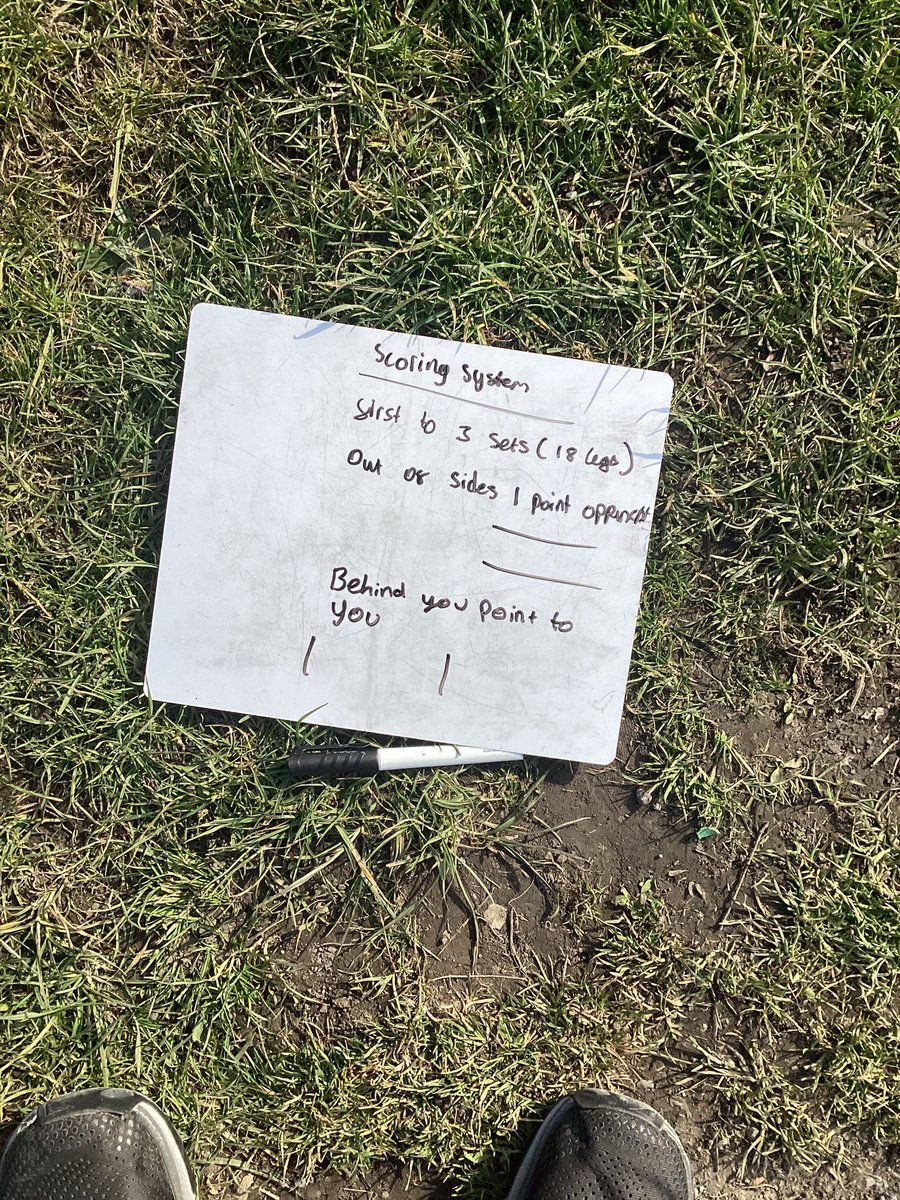 Scoring System
first to 3 sets (18 legs)
Out or sides 1 point opponent
Behind you point to
you